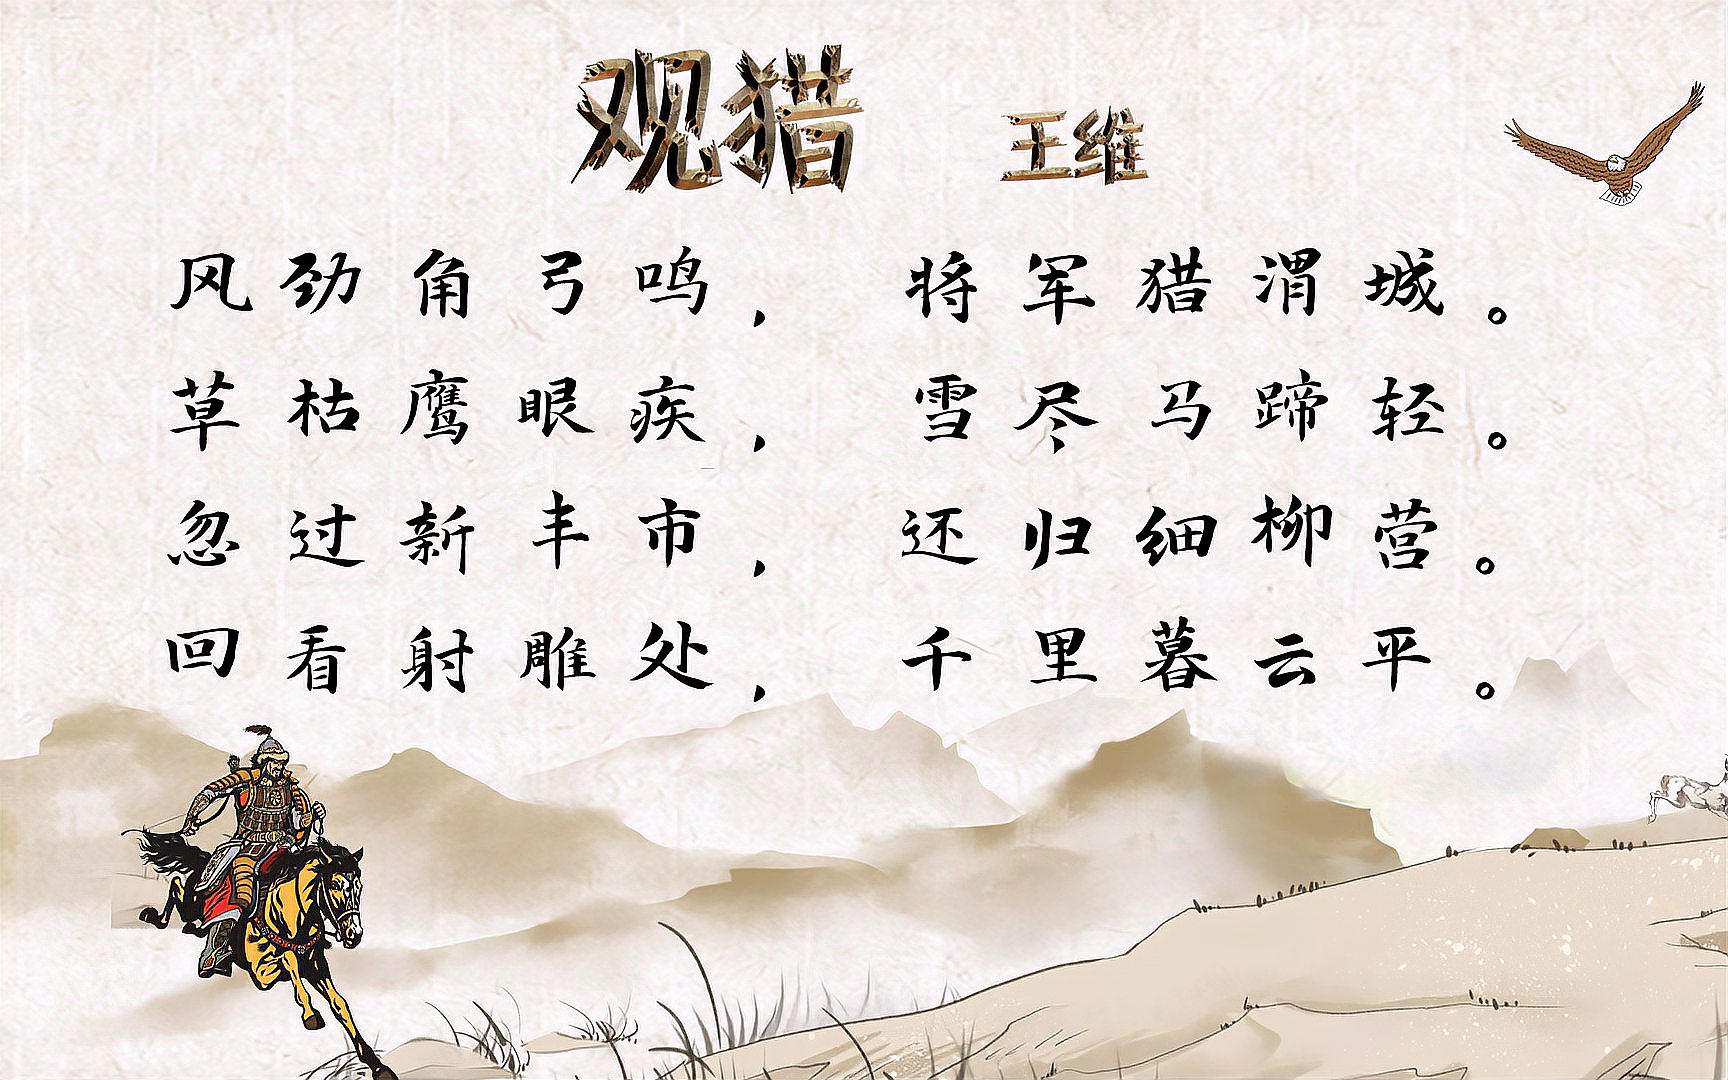 观猎 王维
风劲角弓鸣，将军猎渭城。
草枯鹰眼疾，雪尽马蹄轻。
忽过新丰市，还归细柳营。
回看射雕处，千里暮云平。